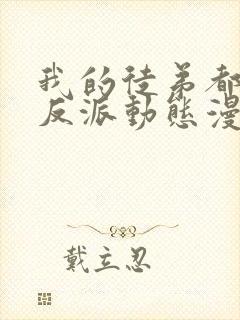 我的徒弟都
反派動態漫
戴立忍